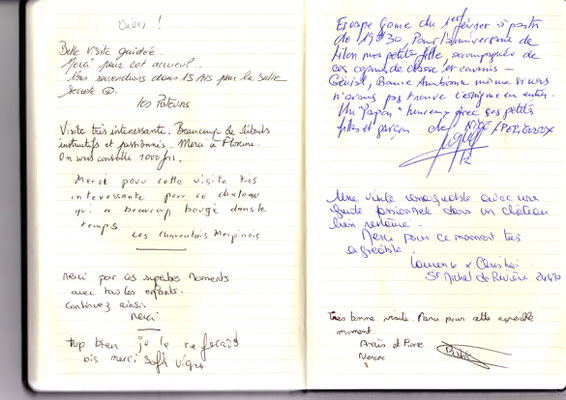 Belle visite guidée.
Merci pour cet accueil.
Nous reviendrons dans 15 ans pour la salle
secrète
Les
Visite très interessante. Beaucoup de détails
instructifs et passionnés. Merci à
On vous conseille 1000 fois.
Merci pour cette visite très
interessante pour ce chateau
qui a beaucoup bougé dans le
temps
Les Charentais
merci par ces superbes moments
avec tous les enfants.
Continuez ainsi
merci
trop bien je le referais
bis merci
Escape game du 1er février à partir
de 19H30 Pour l'anniversaire de
ma petite fille, accompagnée de
ces copains de classe et cousins -
Génial, Bonne Ambiance même si nous
n'avons pas trouvé l'énigme en entier.
Un "Papou" heureux avec ses petits
filles et garçon de
Une visite remarquable avec une
guide passionnée dans un château
bien restauré.
Merci pour ce moment très
agréable.
Laurence &
St Michel de Rivière 24490
Très bonne visite. Merci pour cette agréable
moment.
Anaïs et Pierre
Nersac